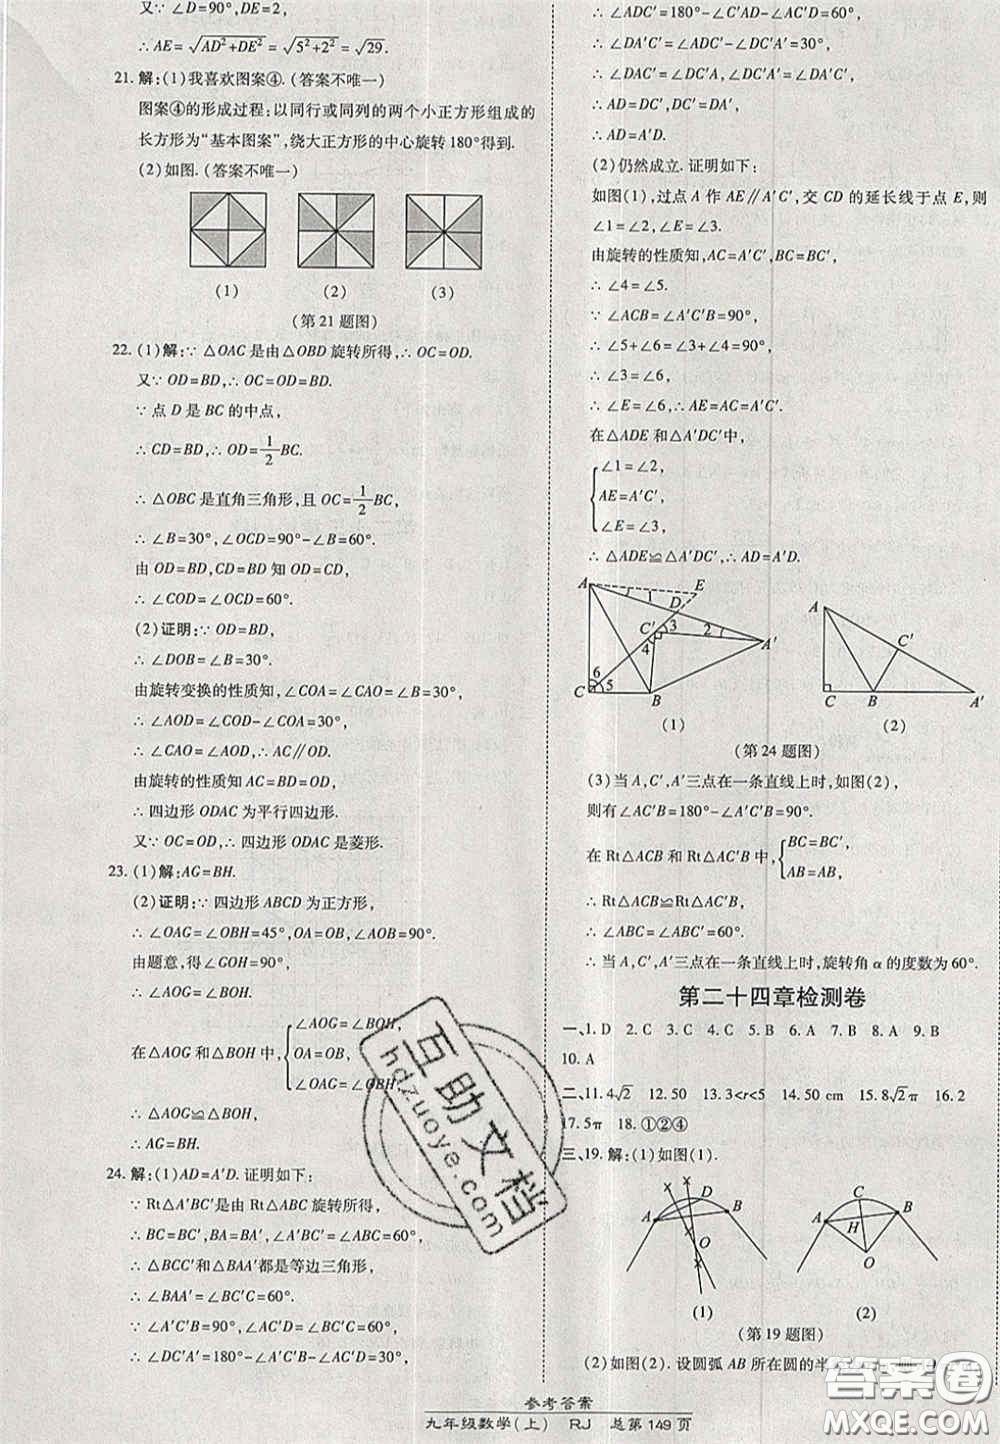 又∵∠D=90°,DE=2,
∴AE=√(AD²+DE²)=√(5²+2²)=√29.
21. 解:(1)我喜欢图案④. (答案不唯一)
图案④的形成过程:以同行或同列的两个小正方形组成的
长方形为“基本图案”,绕大正方形的中心旋转180°得到.
(2)如图. (答案不唯一)
(1) (2) (3)
(第21题图)
22. (1)解:∵△OAC是由△OBD旋转所得,∴OC=OD.
又∵OD=BD,∴OC=OD=BD.
∵点D是BC的中点,
∴CD=BD,∴OD=1/2BC.
∴△OBC是直角三角形,且OC=1/2BC,
∴∠B=30°,∠OCD=90°-∠B=60°.
由OD=BD,CD=BD知OD=CD,
∴∠COD=∠OCD=60°.
(2)证明:∵OD=BD,
∴∠DOB=∠B=30°.
由旋转变换的性质知,∠COA=∠CAO=∠B=30°,
∴∠AOD=∠COD-∠COA=30°,
∴∠CAO=∠AOD,∴AC∥OD.
由旋转的性质知AC=BD=OD,
∴四边形ODAC为平行四边形.
又∵OC=OD,∴四边形ODAC是菱形.
23. (1)解:AG=BH.
(2)证明:∵四边形ABCD为正方形,
∴∠OAG=∠OBH=45°,OA=OB,∠AOB=90°.
由题意,得∠GOH=90°,
∴∠AOG=∠BOH.
在△AOG和△BOH中,{∠AOG=∠BOH,
OA=OB,
∠OAG=∠OBH,
∴△AOG≌△BOH,
∴AG=BH.
24. 解:(1)AD=A′D. 证明如下:
∵Rt△A′BC′是由Rt△ABC旋转所得,
∴BC=BC′,BA=BA′,∠A′BC′=∠ABC=60°,
∴△BCC′和△BAA′都是等边三角形,
∴∠BAA′=∠BC′C=60°.
∵∠A′C′B=90°,∠AC′D=∠BC′C=60°,
∴∠DC′A′=180°-∠A′C′B-∠BC′C=30°,
∴∠ADC′=180°-∠C′AD-∠AC′D=60°,
∴∠DA′C′=∠ADC′-∠DC′A′=30°,
∴∠DAC′=∠DC′A,∠DC′A′=∠DA′C′,
∴AD=DC′,DC′=A′D,
∴AD=A′D.
(2)仍然成立. 证明如下:
如图(1),过点A作AE∥A′C′,交CD的延长线于点E,则
∠1=∠2,∠E=∠3.
由旋转的性质知,AC=A′C′,BC=BC′,
∴∠4=∠5.
∵∠ACB=∠A′C′B=90°,
∴∠5+∠6=∠3+∠4=90°,
∴∠3=∠6,
∴∠E=∠6,∴AE=AC=A′C′.
在△ADE和△A′DC′中,
{∠1=∠2,
AE=A′C′,
∠E=∠3,
∴△ADE≌△A′DC′,∴AD=A′D.
A E D 1 C′ 3 2 A′ 4 6 5 C B
(1)
A C′ C B A′
(2)
(第24题图)
(3)当A,C′,A′三点在一条直线上时,如图(2),
则有∠AC′B=180°-∠A′C′B=90°.
在Rt△ACB和Rt△AC′B中,{BC=BC′,
AB=AB,
∴Rt△ACB≌Rt△AC′B,
∴∠ABC=∠ABC′=60°.
∴当A,C′,A′三点在一条直线上时,旋转角α的度数为60°.
第二十四章检测卷
一、1. D 2. C 3. C 4. C 5. B 6. A 7. B 8. A 9. B
10. A
二、11. 4√2 12. 50 13. 3<r<5 14. 50 cm 15. 8√2π 16. 2
17. 5π 18. ①②④
三、19. 解:(1)如图(1).
A D B O
(1)
A C B H O
(2)
(第19题图)
(2)如图(2). 设圆弧AB所在圆的半
参考答案
九年级数学(上) RJ 总第149页
互助文档
hdzuoye.com
答案圈
MXQE.COM